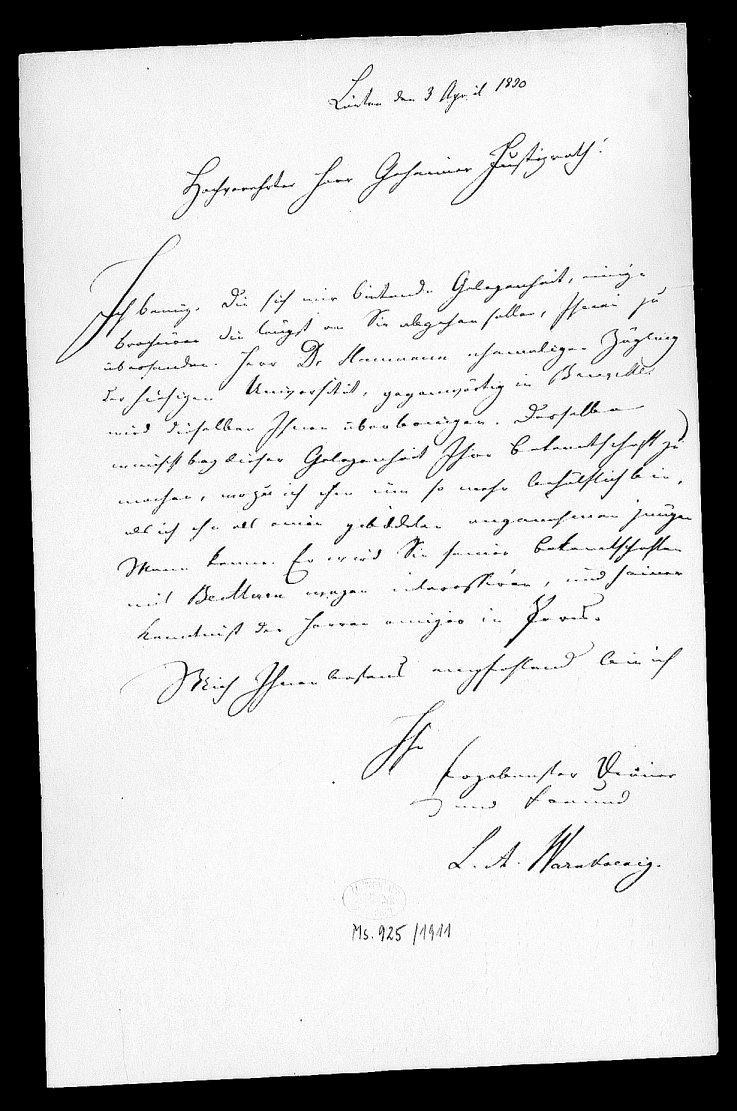 Löwen den 3 April 1830
Hochverehrter Herr Geheimer Justizrath!
Ich benutze die sich mir bietende Gelegenheit, einige
Brochüren die längst an Sie abgehen sollen, Ihnen zu
übersenden. Herr Dr ehemaliger Zögling
der hiesigen Universität, gegenwärtig in
wird dieselben Ihnen überbringen. Derselbe
wünscht bey dieser Gelegenheit Ihre Bekanntschaft zu
machen, wozu ich ihm um so mehr behülflich bin,
als ich ihn als einen gebildeten angenehmen jungen
Mann kenne. Er wird Sie seiner Bekanntschaften
mit wegen interessiren, und seiner
Kenntniß der Herren in
Mich Ihnen bestens empfehlend bin ich
Ihr
Ergebenster Diener
und Freund
L. A. Warnkoenig.
Ms. 925/1911